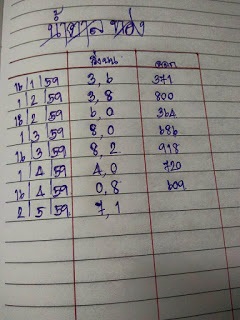 น้ำตาลทอง
ล่างบน ออก
16 1 59 3, 6 371
1 2 59 3, 8 800
16 2 59 6, 0 364
1 3 59 8, 0 686
16 3 59 8, 2 918
1 4 59 4, 0 720
16 4 59 0, 8 609
2 5 59 7, 1